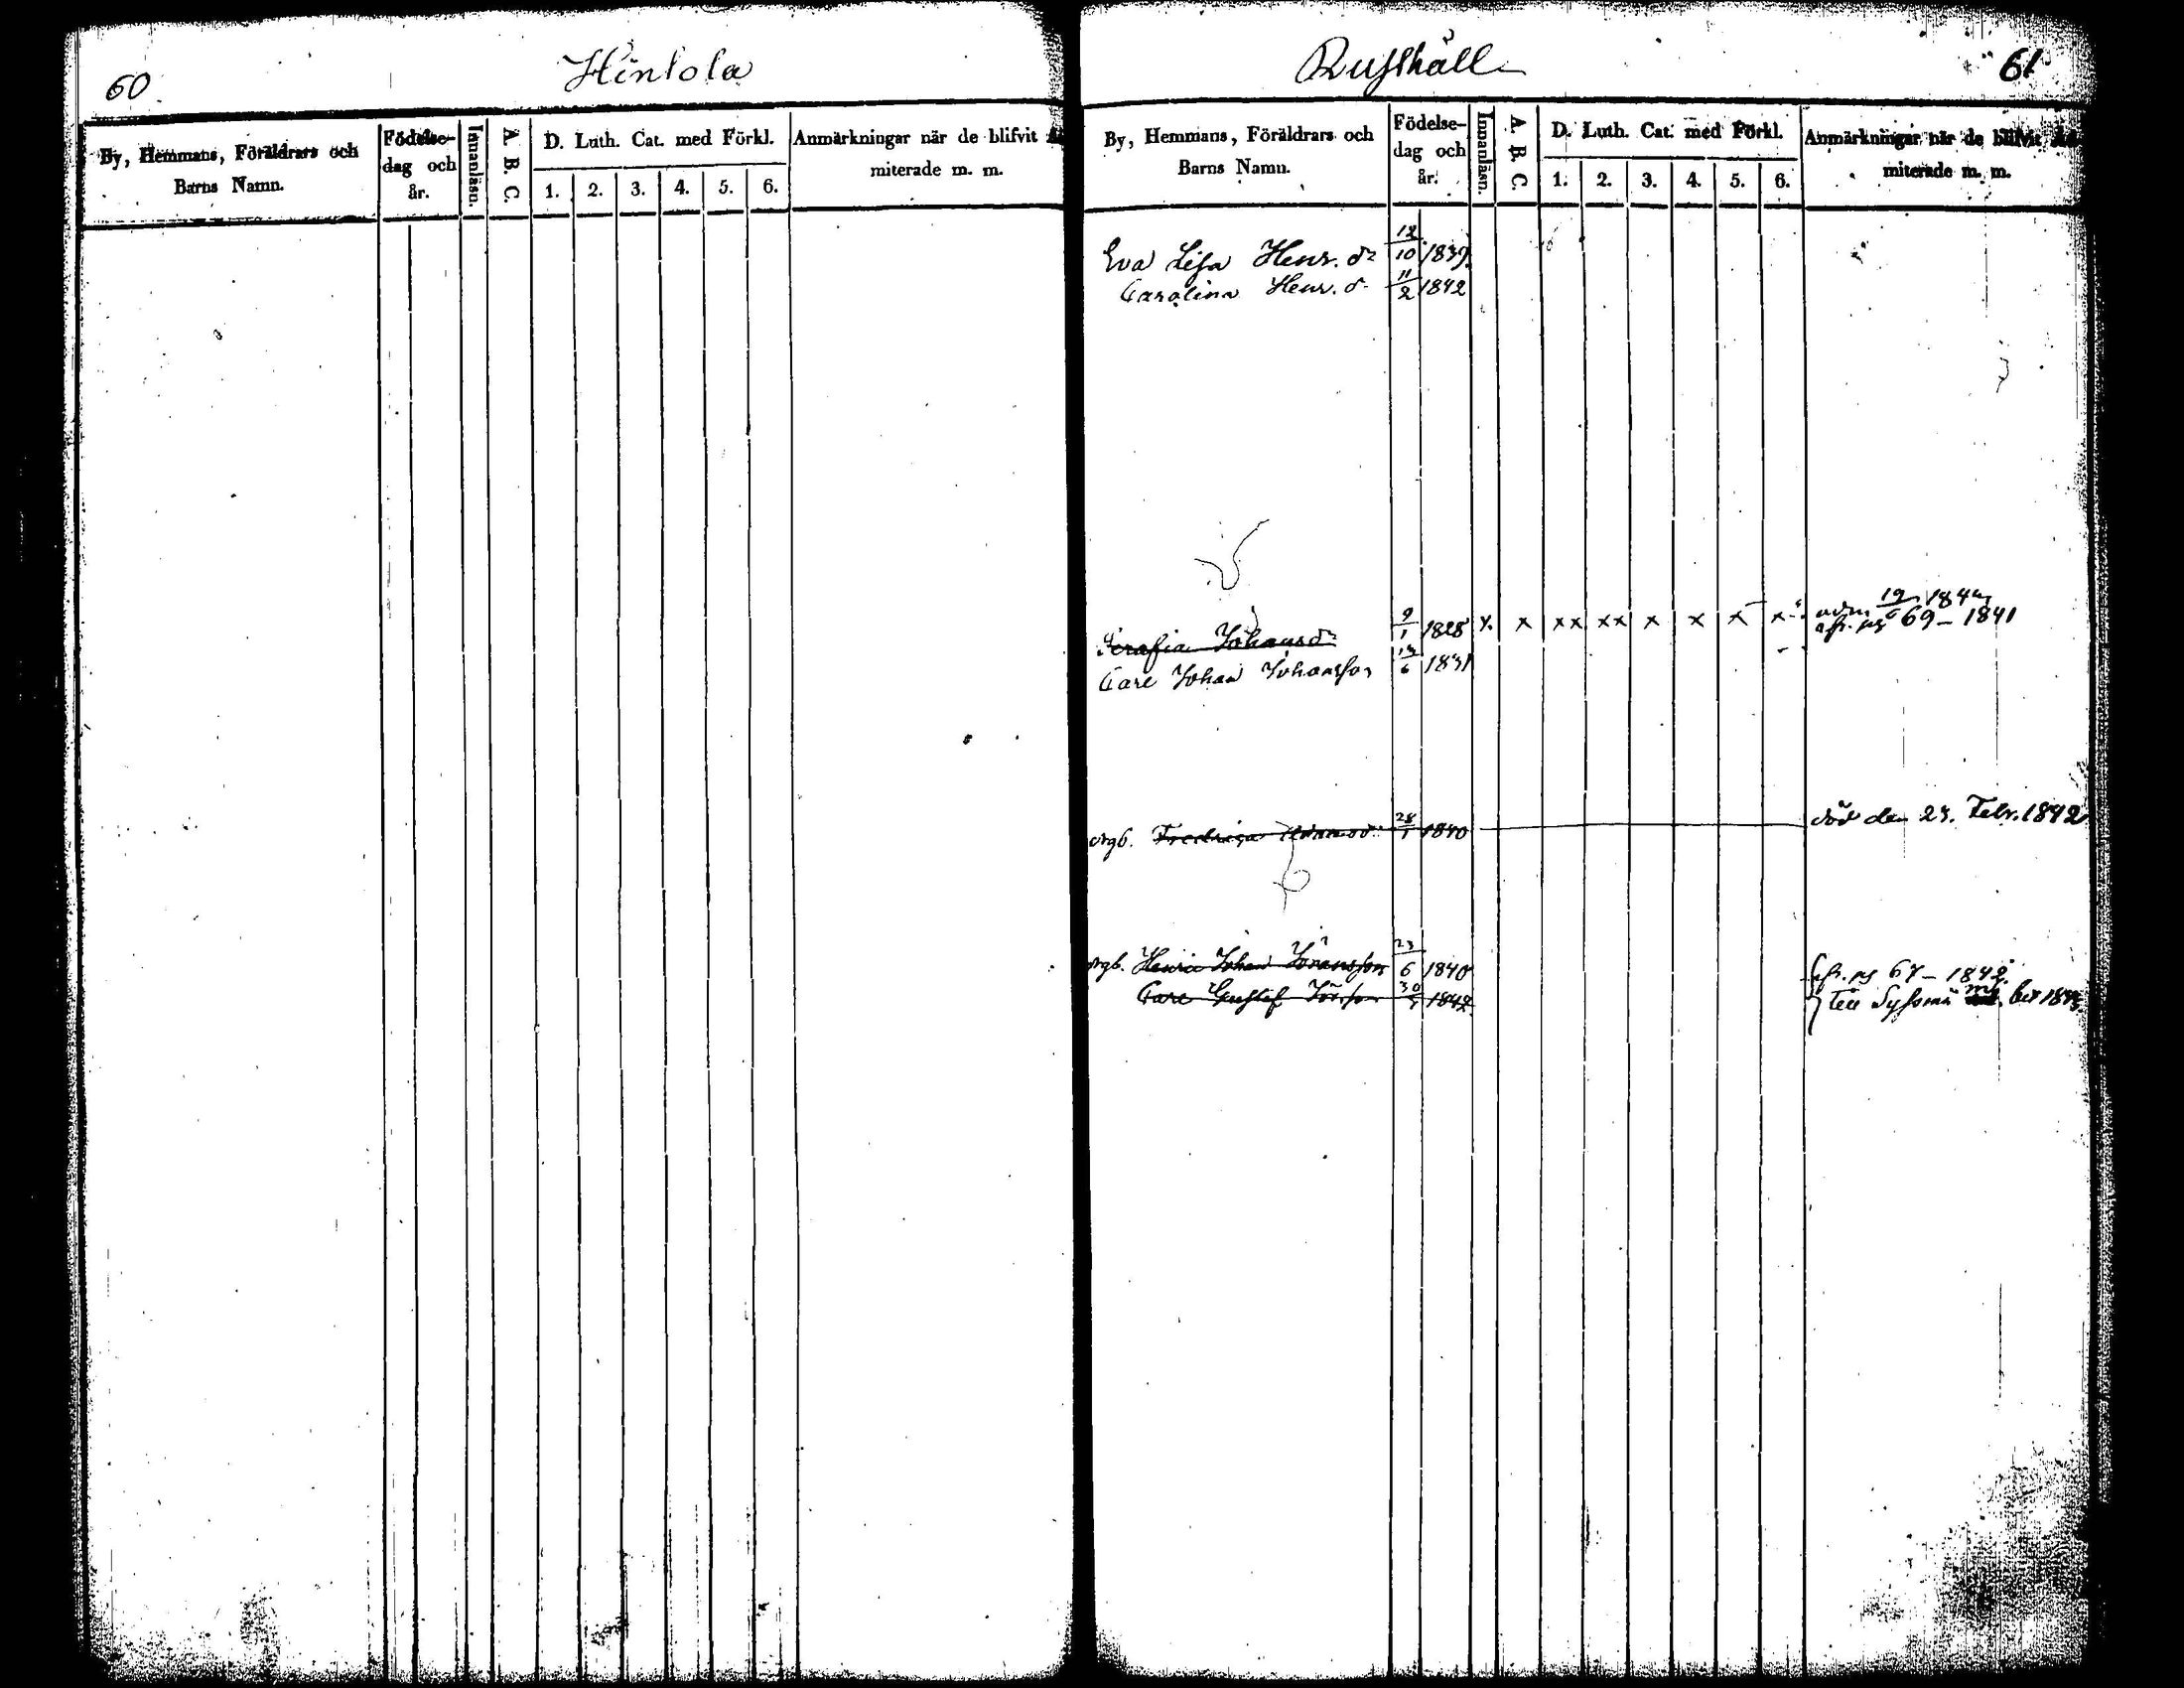 60
Hintola
By, Hemmans, Föräldrars och
Barns Namn.
Födelse-
dag och
år.
Innanläsn.
A. B. C.
D. Luth. Cat. med Förkl.
1. 2. 3. 4. 5. 6.
Anmärkningar när de blifvit
miterade m. m.
Rusthåll
61
By, Hemmans, Föräldrars och
Barns Namn.
Födelse-
dag och
år.
Innanläsn.
A. B. C
D. Luth. Cat. med Förkl.
1. 2. 3. 4. 5. 6.
Anmärkningar när de blifvit Ad-
miterade m. m.
Eva Lisa Henr. dr 12/10 1839.
Carolina Henr. d. 11/2 1842
Serafia Johansdr 9/1 1828 x x xx xx x x x x adm 19/6 184
fr. pg 69 - 1841
Carl Johan Johansson 6 1831
Fredrica 28/1 1840 död den 23. Febr. 1842
Henric Johan Göransson 23/6 1840 fr. pg 67 - 1842
Carl Gustaf 30 1842 till Sysmä bet 1843